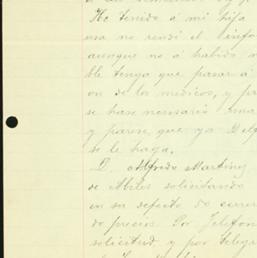 He tenido á mi hija
no rendí el info
aunque no á habido
ble tengo que pasar á
on de los medicos, y p
se hase nesesario una
y parese que ya Delf
se le haga.
D. Alfredo Martinez
de Miles solicitando
en su defecto de
de precios. Por Telefon
solicitud y por telegr